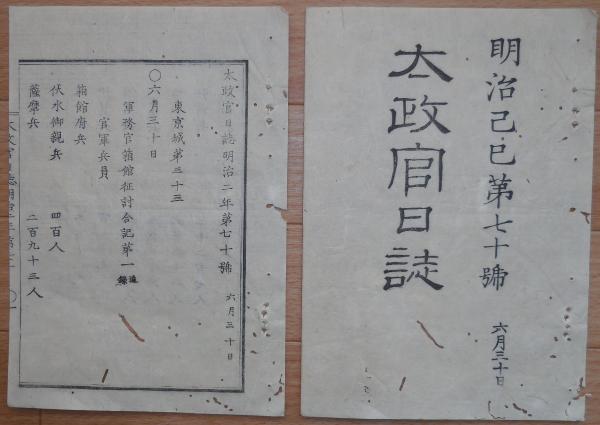 明治己巳第七十號
太政官日誌
六月三十日
太政官日誌明治二年第七十號 六月三十日
東京城第三十三
〇六月三十日
軍務官箱館征討合記第一追録
官軍兵員
箱館府兵
伏水御親兵 四百人
薩摩兵 二百九十三人